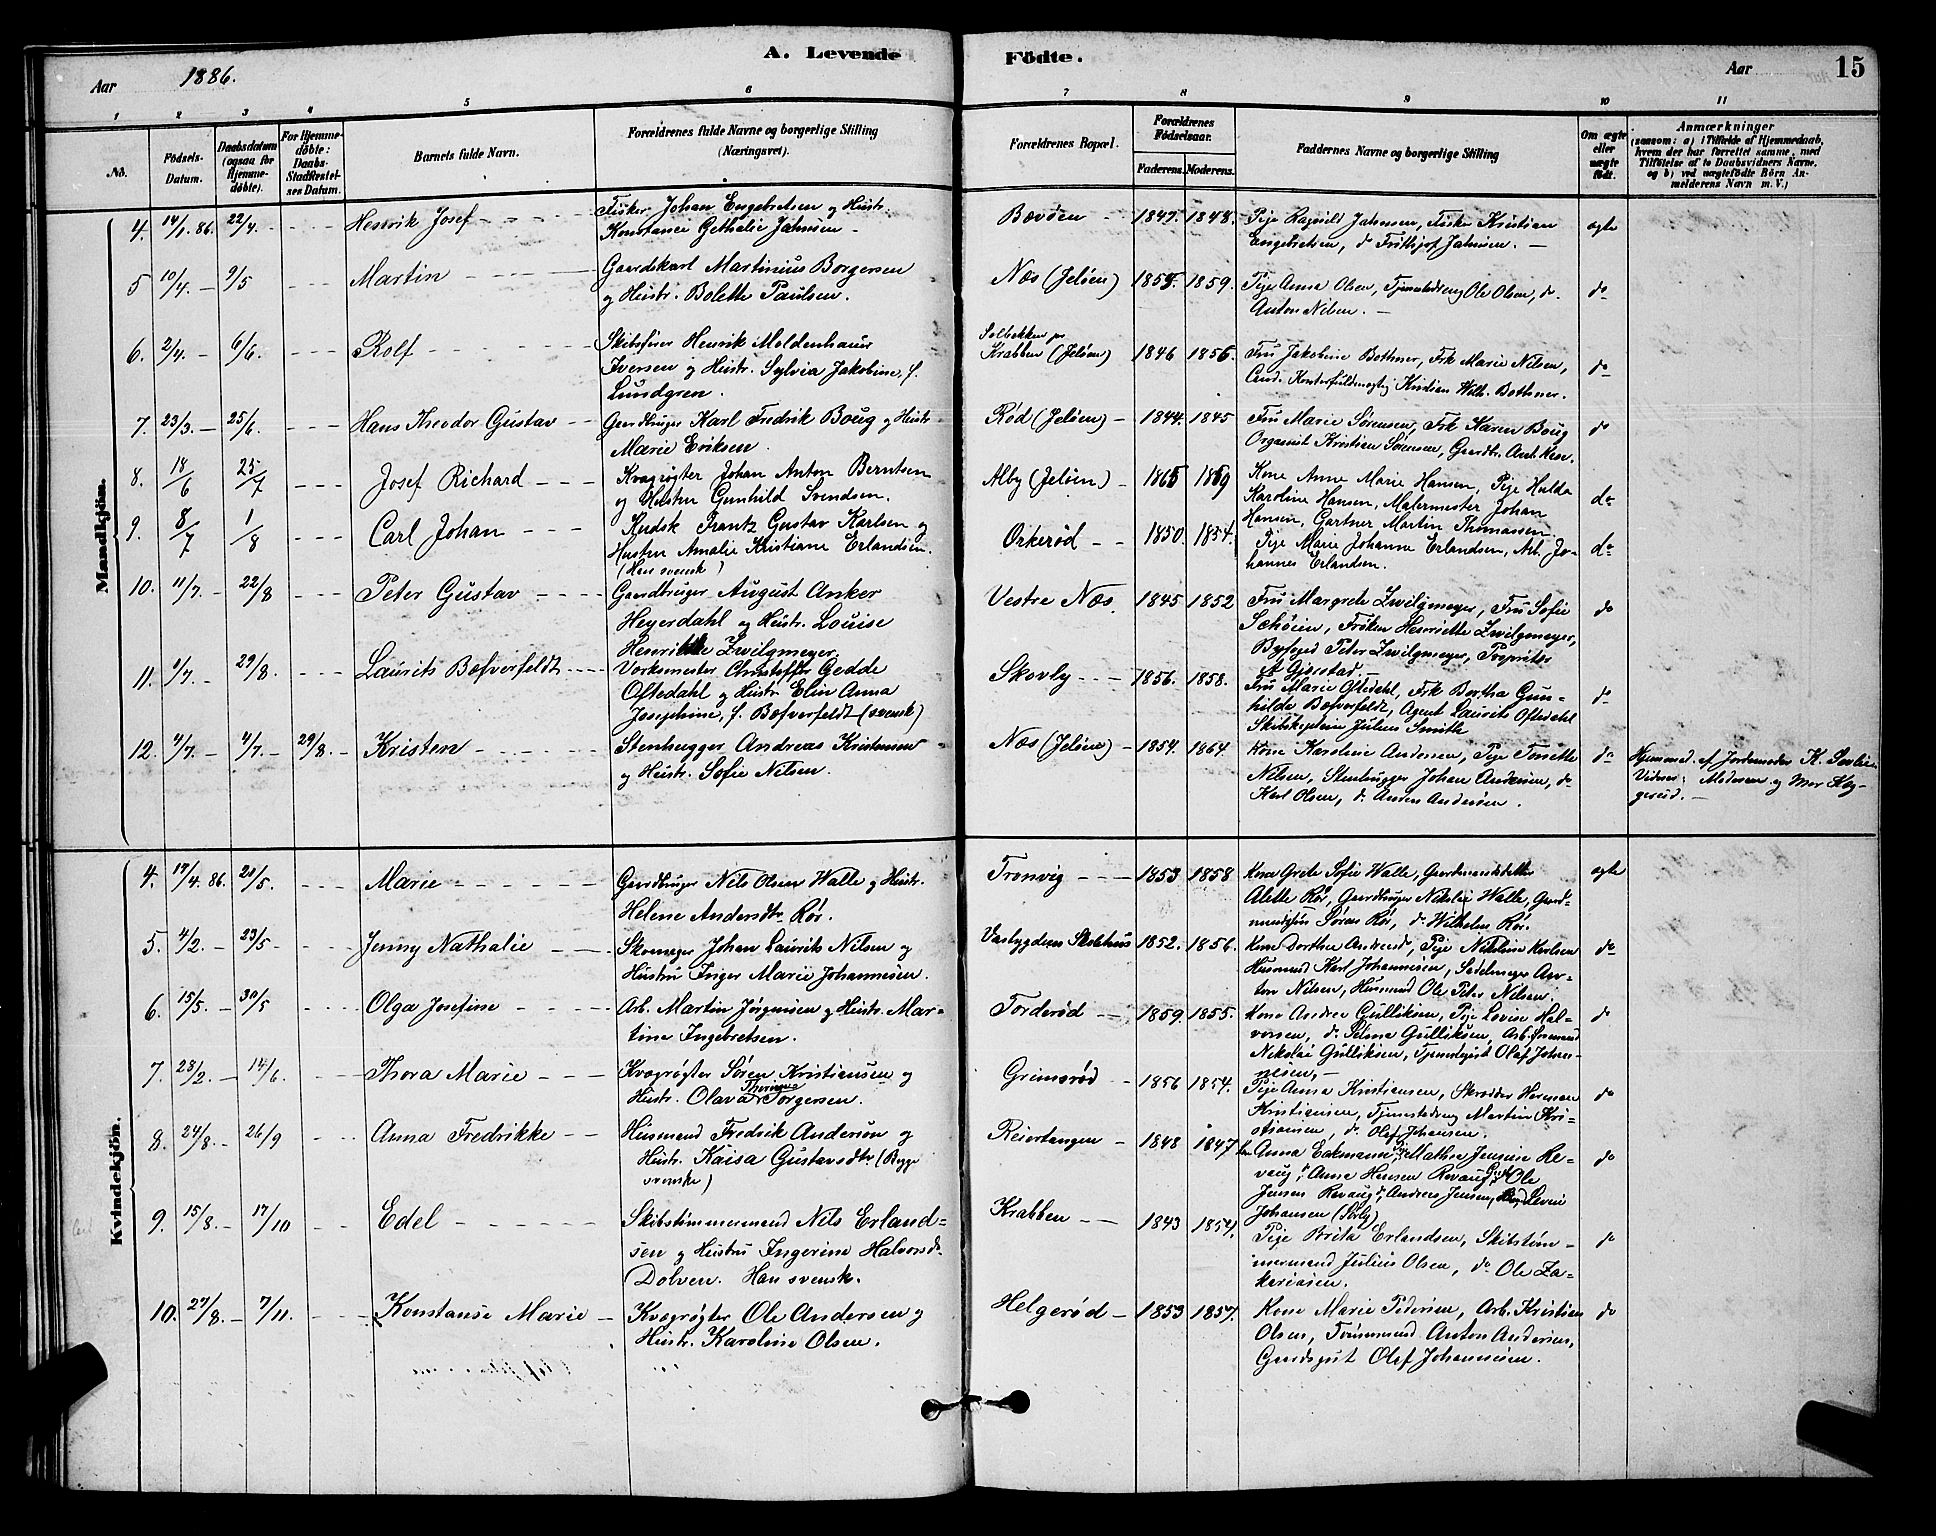 A. Levende Födte.
Aar 1886.
Aar 15
1 2 3 4 5 6 7 8 9 10 11
No.
Fødsels-Datum.
Daabsdatum (ogsaa for Hjemme-døbte).
For Hjemme-døbte: Daabs-Stadfæstel-ses Datum.
Barnets fulde Navn.
Forældrenes fulde Navne og borgerlige Stilling (Næringsvei).
Forældrenes Bopæl.
Forældrenes Fødselsaar.
Faderens. Moderens.
Faddernes Navne og borgerlige Stilling
Om ægte eller uægte født.
Anmærkninger
(saasom: a) i Tilfælde af Hjemmedaab, hvem der har forrettet samme, med Tilføielse af to Daabsvidners Navne, og b) ved uægtefødte Børn An-melderens Navn m. V.)
Mandkjön.
4. 14/1 86. 22/4. Henrik Josef
Fisker Johan Engebretsen og Hustr.
Konstance Gethalie Jahnsen
Bævden 1847. 1848.
Pige Ragnild Jahnsen, Fisker Kristian
Engebretsen, do Frithjof Jahnsen. ægte
5 10/4. 9/5 Martin
Gaardskarl Martinius Borgersen
og Hustr. Bolette Paulsen.
Næs (Jeløen) 1854. 1859.
Pige Anna Olsen, Tjenestedreng Ole Olsen, do.
Anton Nilsen. do
6. 2/4. 6/6. Rolf
Skibsfører Henrik Moldenhauer
Iversen og Hustr. Sylvia Jakobine, f.
Lundgren.
Solbakken pr
Krabben (Jeløen) 1846 1856.
Fru Jakobine Bothner, Frk Marie Nilsen,
Cand. Kontorfuldmægtig Kristian Wilh. Bothner. do
7. 23/3. 25/6. Hans Theodor Gustav
Gaardbruger Karl Fredrik Boug og Hustr
Marie Eriksen.
Rød (Jeløen) 1844. 1845
Fru Marie Sørensen, Frk Karen Boug
Organist Kristian Sørensen, Gaardbr. Ant. do
8. 18/6 25/7 Josef Richard
Kvægrøgter Johan Anton Berntsen
og Hustru Gunhild Svendsen.
Alby (Jeløen) 1865 1869
Kone Anne Marie Hansen, Pige Hulda
Karoline Hansen, Malermester Johan
Hansen, Gartner Martin Thomassen. do
9. 8/7 1/8 Carl Johan
Kudsk Frantz Gustav Karlsen og
Hustru Amalie Kristiane Erlandsen.
(Han svensk)
Orkerød 1850. 1854.
Pige Marie Johanne Erlandsen, Arb. Jo-
hannes Erlandsen. do
10. 11/7. 22/8 Peter Gustav
Gaardbruger August Anker
Heyerdahl og Hustr. Louise
Henriette Zwilgmeyer.
Vestre Næs. 1845 1852
Fru Margrete Zwilgmeyer, Fru Sofie
Schøien, Frøken Henriette Zwilgmeyer,
Byfoged Peter Zwilgmeyer, Proprietær
A Gjerstad. do
11. 1/7. 29/8. Laurits Bæfverfeldt
Værksmester Christoffer Gedde
Oftedahl og Hustr. Elin Anna
Josephine, f. Bæfverfeldt (svensk)
Skovly 1856. 1858.
Fru Marie Oftedahl, Frk Bertha Gun-
hilde Bæfverfeldt, Agent Laurits Oftedahl
Skibskaptein Julius Smith do
12. 4/7. 4/7. 29/8. Kristen
Stenhugger Andreas Kristensen
og Hustr. Sofie Nilsen.
Næs (Jeløen) 1854. 1864.
Kone Karoline Andersen, Pige
Nilsen, Stenhugger Johan Andersen, do
Karl Olsen, do. Anders Andersen. do
Hjemmed. af Jordemoder K.
Vidner: Moderen og Mor
Kvindekjön.
4. 17/4 86. 20/5. Marie
Gaardbruger Nils Olsen Walle og Hustr.
Helene Andersdtr. Rør.
Tronvig 1853 1858
Kone Grete Sofie Walle, Gaardmandsdatter
Alette Rør, Gaardbruger Nikolai Walle, Gaard-
mandssøn Søren Rør, do Wilhelm Rør. ægte
5. 4/2. 23/5 Jenny Nathalie
Skomager Johan Laurits Nilsen og
Hustru Inger Marie Johannesen.
Vasbygdens Skolehus 1852. 1856.
Kone Dorthea Andreasd, Pige Nikoline Karlsen
Husmand Karl Johannesen, Sadelmager An-
ton Nilsen, Husmand Ole Peter Nilsen. do
6. 15/5. 30/5 Olga Josefine
Arb. Martin Jørgensen og Hustr. Mar-
tine Ingebretsen.
Torderød 1859. 1855.
Kone Andrea Gulliksen, Pige Lovise Hal-
vorsen, do. Selma Gulliksen, Arb.
Nikolai Gulliksen, Olaf Johan-
nesen. do
7. 28/2. 14/6. Thora Marie
Kvægrøgter Søren Kristiansen og
Hustr. Olava Thorine Torgersen.
Grimsrød 1856 1854.
Pige Anna Kristiansen, Skrædder Herman
Kristiansen, Tjenestedreng Martin Kri-
stiansen, do. Olaf Johansen. do
8. 24/8. 26/9 Anna Fredrikke
Husmand Fredrik Anderson og
Hustr. Kaisa Gustavsdtr (Begge
svenske)
Reiertangen 1848 1847
Anna Eakmann, Pige Mathea Jensine Re-
vaug, do. Anna Hansen Revaug, Ole
Jensen Revaug, do. Andreas Jensen, Levin
Johansen do
9. 15/8. 17/10 Edel
Skibstømmermand Nils Erland-
sen og Hustru Ingerine Halvorsd.
Dolven. Han svensk.
Krabben 1843 1854.
Pige Brita Erlandsen, Skibstøm-
mermand Julius Olsen, do. Ole Za-
kariasen. do
10. 27/8. 7/11. Konstanse Marie
Kvægrøgter Ole Andersen og
Hustr. Karoline Olsen.
Helgerød 1853 1857.
Kone Marie Pedersen, Arb. Kristian
Olsen, Anton Andersen,
Gaardsgut Olaf Johannesen. do